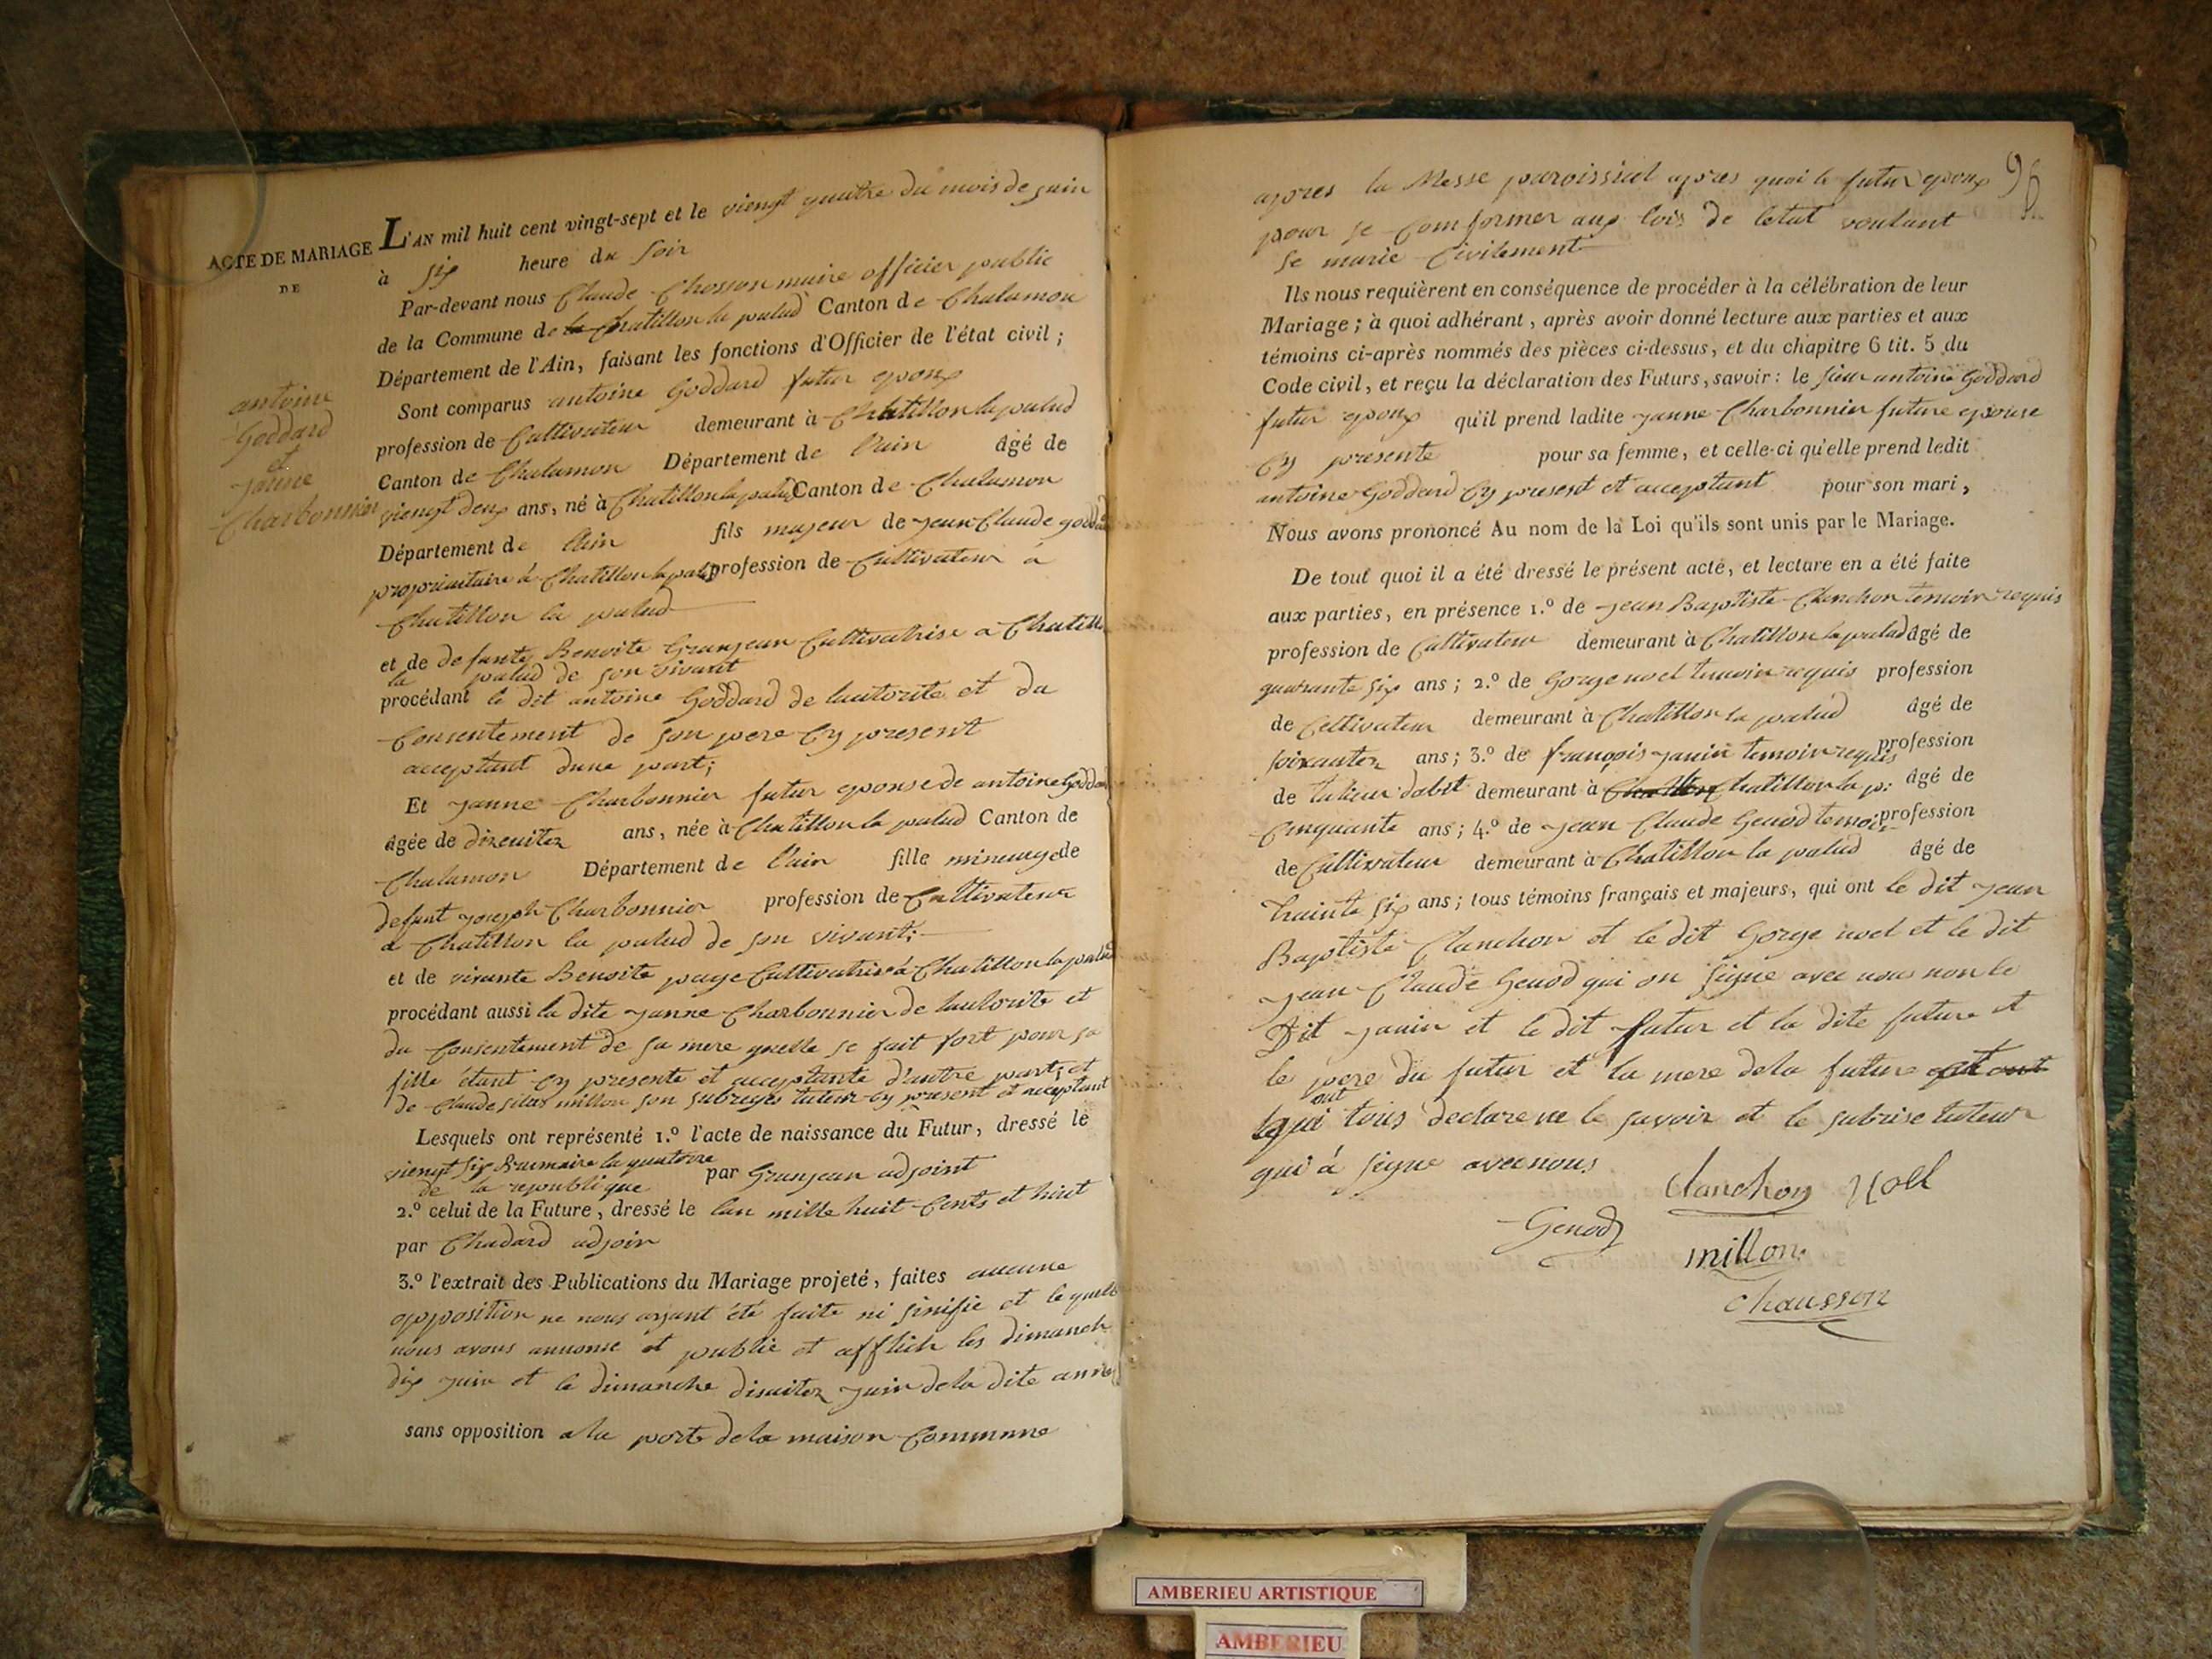 ACTE DE MARIAGE
DE
antoine
Goddard
et
janne
Charbonnier
L'AN mil huit cent vingt-sept et le viengt quatre du mois de juin
à six heure du soir
Par-devant nous Claude Chosson maire officier public
de la Commune de Chatillon la palud Canton de Chalamon
Département de l'Ain, faisant les fonctions d'Officier de l'état civil ;
Sont comparus antoine Goddard futur epoux
profession de Cultivateur demeurant à Chatillon la palud
Canton de Chalamon Département de lain âgé de
viengt deux ans, né à Chatillon la palud Canton de Chalamon
Département de lain fils majeur de jean Claude godda
propriaitaire à Chatillon la palud profession de Cultivateur a
Chatillon la palud
et de defunte Benoite Granjean Cultivatrise a Chatillo
la palud de son vivant
procédant le dit antoine Goddard de lautorite et du
Consentement de son pere Cy present
acceptant dune part ;
Et janne Charbonnier futur epouse de antoine Goddar
âgée de dixeuitez ans, née à Chatillon la palud Canton de
Chalamon Département de lain fille mineure de
defunt joseph Charbonnier profession de Cultivateur
a Chatillon la palud de son vivant ;
et de vivante Benoite page Cultivatrise à Chatillon la palud
procédant aussi la dite janne Charbonnier de lautorite et
du Consentement de sa mere quelle se fait fort pour sa
fille étant Cy presente et acceptante d'autre part ; et
de Claude millon son tuteur Cy present et acceptant
Lesquels ont représenté 1.º l'acte de naissance du Futur, dressé le
viengt six Brumaire la quatorze
de la republique par Granjean adjoint
2.º celui de la Future, dressé le lan mille huit Cents et huit
par Chadard adjoin
3.º l'extrait des Publications du Mariage projeté, faites aucune
opposition ne nous ayant été faite ni sinifie et lequelle
nous avons annonse et publie et affich les dimanch
dix juin et le dimanche disuitez juin dela dite anne
sans opposition a la porte dela maison Commune
96
apres la Messe paroissial apres quoi le futur epoux
pour se Comformer aux lois de letat voulant
se marie Civilement
Ils nous requièrent en conséquence de procéder à la célébration de leur
Mariage ; à quoi adhérant, après avoir donné lecture aux parties et aux
témoins ci-après nommés des pièces ci-dessus, et du chapitre 6 tit. 5 du
Code civil, et reçu la déclaration des Futurs, savoir : le sieur antoine Goddard
futur epoux qu'il prend ladite janne Charbonnier future epouse
Cy presente pour sa femme, et celle-ci qu'elle prend ledit
antoine Goddard Cy present et acceptant pour son mari,
Nous avons prononcé Au nom de la Loi qu'ils sont unis par le Mariage.
De tout quoi il a été dressé le présent acte, et lecture en a été faite
aux parties, en présence 1.º de jean Baptiste Clanchon temoin requis
profession de Cultivateur demeurant à Chatillon la palud âgé de
quarante six ans ; 2.º de Gorge noel temoin requis profession
de Cultivateur demeurant à Chatillon la palud âgé de
soixantez ans ; 3.º de françois janin temoin requis profession
de talieur dabit demeurant à Chatillon la p: âgé de
Cinquante ans ; 4.º de jean Claude Genod temoin profession
de Cultivateur demeurant à Chatillon la palud âgé de
trainte six ans ; tous témoins français et majeurs, qui ont le dit jean
Baptiste Clanchon et le dit Gorge noel et le dit
jean Claude Genod qui on signe avec nous non le
Dit janin et le dit futur et la dite future et
le pere du futur et la mere dela future
ont
qui tous declare ne le savoir et le subrise tuteur
qui à signe avec nous
Clanchon Noel
Genod
millon
Chausson
AMBERIEU ARTISTIQUE
AMBERIEU